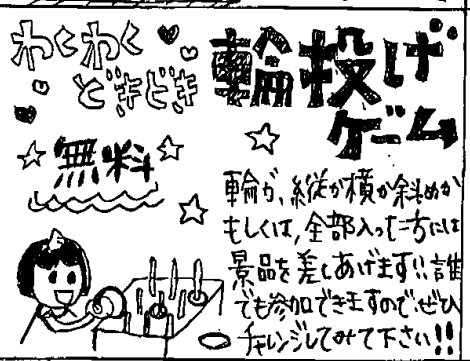 わくわく
どきどき
輪投げ
ゲーム
無料
輪が、縦か横か斜めか
もしくは、全部入った方には
景品を差しあげます!!誰
でも参加できますので、ぜひ
チャレンジしてみて下さい!!